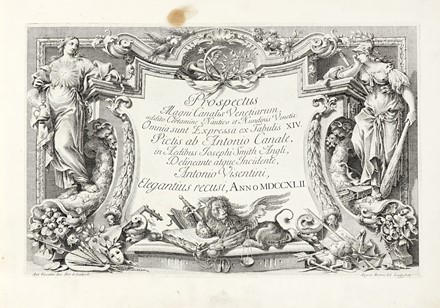 Prospectus
Magni Canalis Venetiarum,
addito Certamine Nautico et Nundinis Venetis:
Omnia sunt Expressa ex Tabulis XIV.
Pictis ab Antonio Canale,
in Aedibus Josephi Smith Angli,
Delineante atque Incidente,
Antonio Visentini,
Elegantius recusi, ANNO MDCCXLII